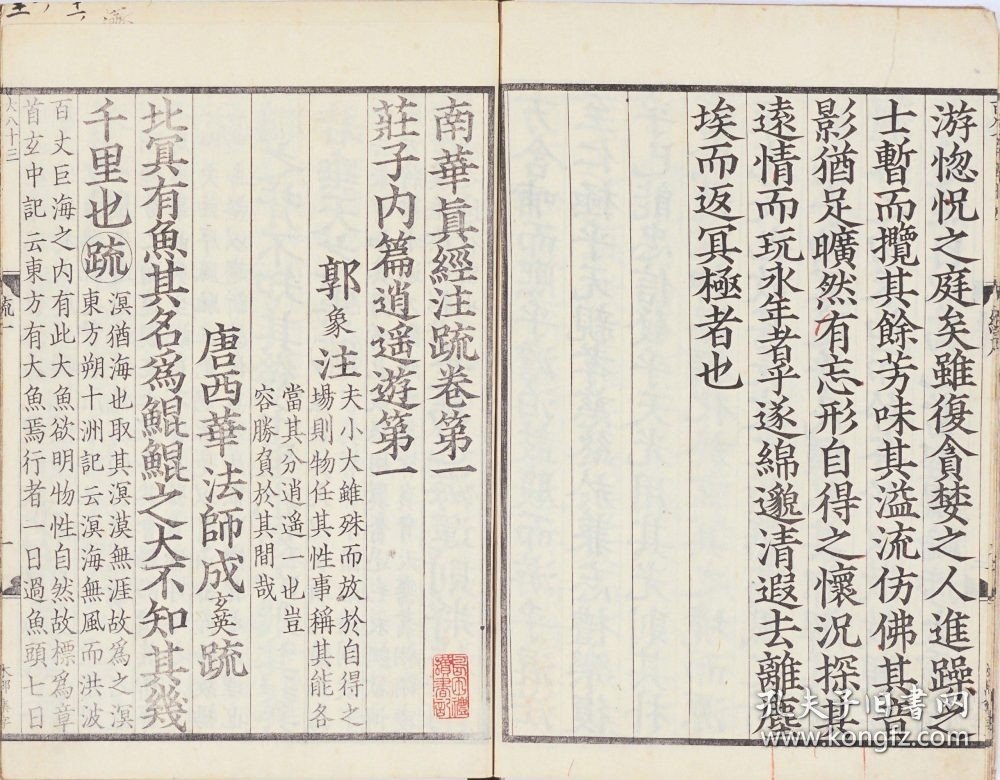 游惚怳之庭矣雖復貪婪之人進躁之
士暫而攬其餘芳味其溢流仿佛其音
影猶足曠然有忘形自得之懷況探其
遠情而玩永年者乎遂綿邈清遐去離塵
埃而返冥極者也
南華眞經注疏卷第一
莊子内篇逍遥遊第一
郭象注
夫小大雖殊而放於自得之
場則物任其性事稱其能各
當其分逍遥一也豈
容勝負於其間哉
唐西華法師成玄英疏
北冥有魚其名爲鯤鯤之大不知其幾
千里也疏
溟猶海也取其溟漠無涯故爲之溟
東方朔十洲記云溟海無風而洪波
百丈巨海之内有此大魚欲明物性自然故標爲章
首玄中記云東方有大魚焉行者一日過魚頭七日
大八十三
疏一
一
孔夫子旧书网
www.kongfz.com